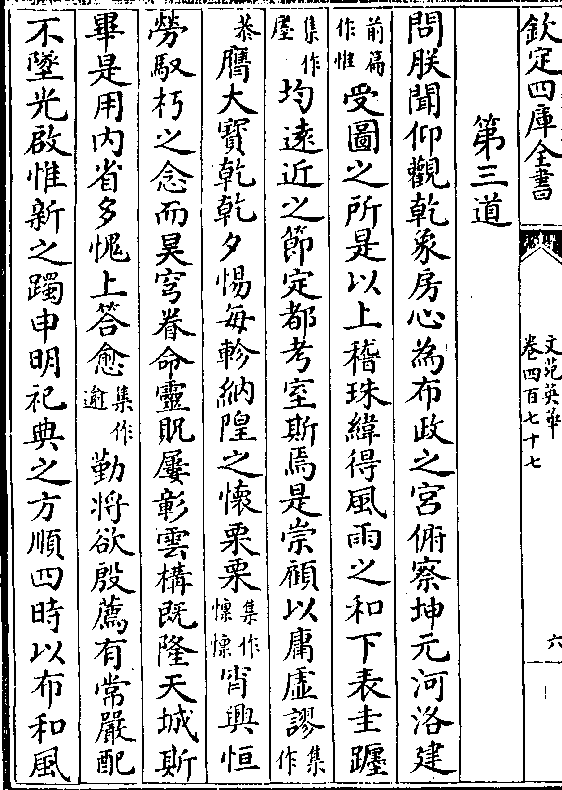 欽定四庫全書
文苑英華
卷四百七十七
六
第三道
問朕聞仰觀乾象房心為布政之宮俯察坤元河洛建
前篇作惟受圖之所是以上稽珠緯得風雨之和下表圭躔
集作㕓均遠近之節定都考室斯焉是崇顧以庸虛謬集作
恭膺大寳乾乾夕惕每軫納隍之懷栗栗集作懍懍宵興恒
勞馭朽之念而昊穹眷命靈貺屢彰雲構既隆天城斯
畢是用内省多愧上答愈集作逾勤將欲殷薦有常嚴配
不墜光啟惟新之躅申明祀典之方順四時以布和風